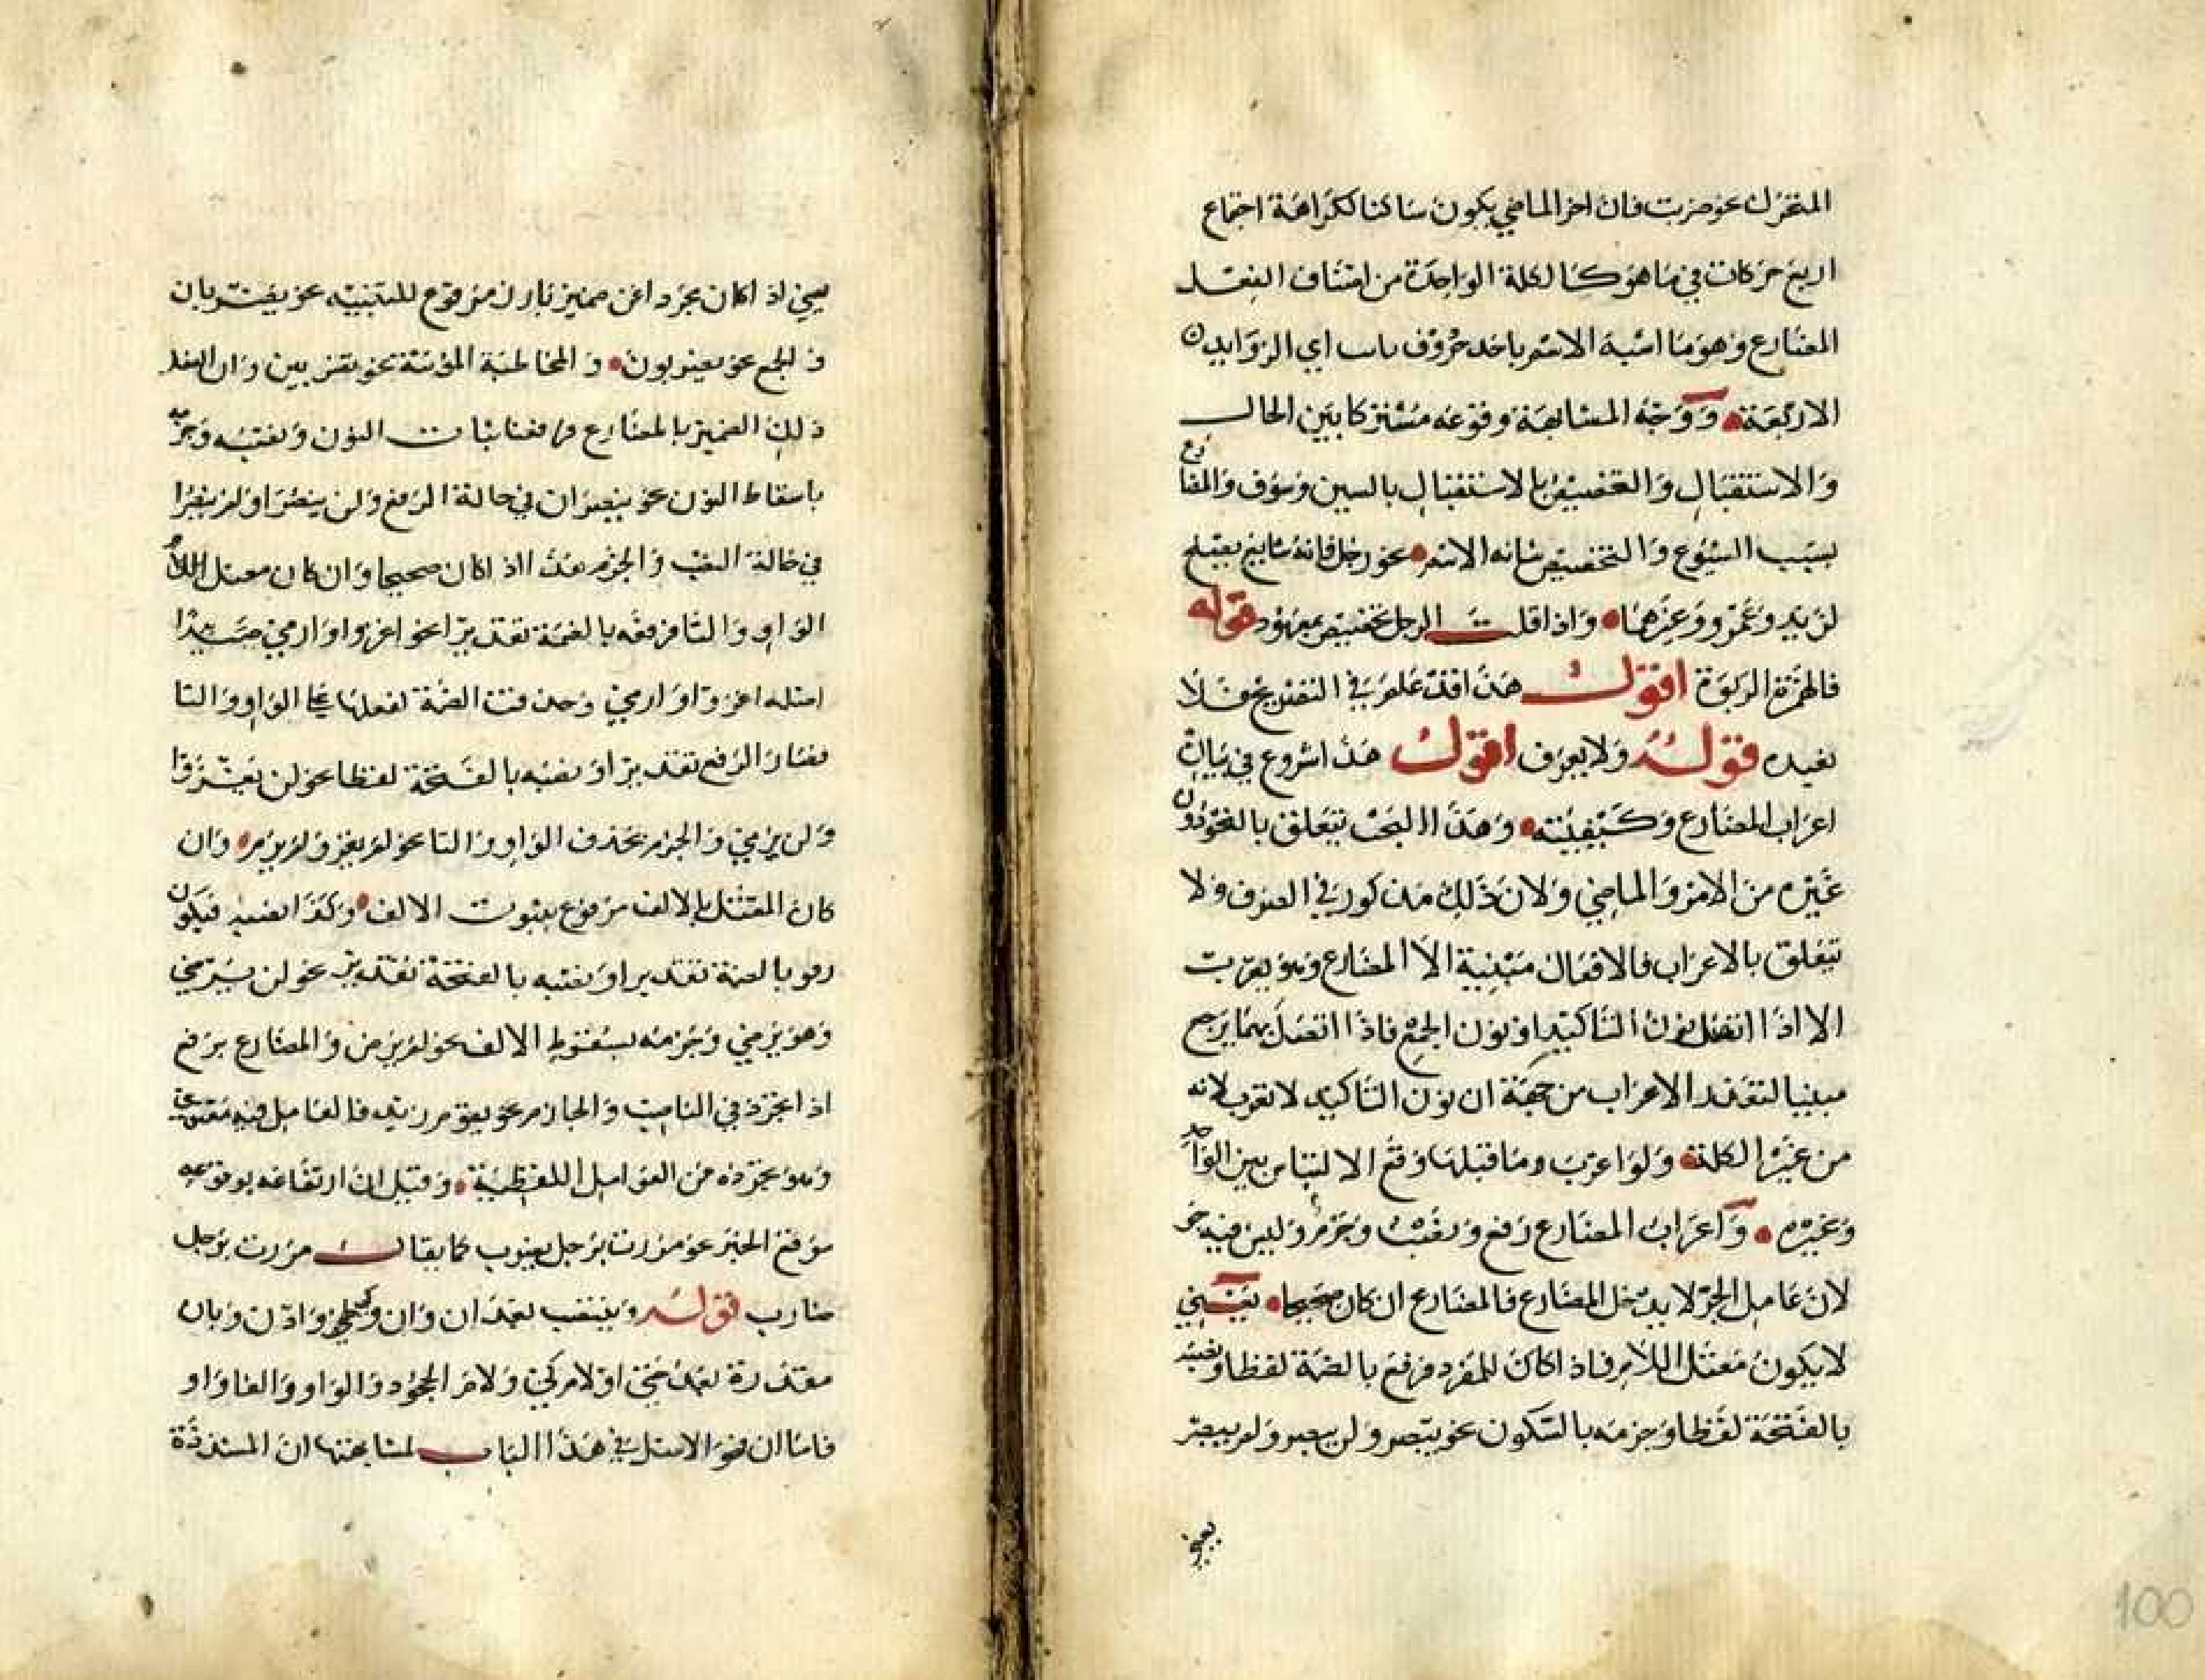 المتحرك نحو ضربت فان اخر الماضي يكون ساكنا لكراهة اجتماع
اربع حركات في ما هو كالكلمة الواحدة من اصناف الفعل
المضارع وهو ما اشبه الاسم باحد حروف نايت اي الزوايد
الاربعة ووجه المشابهة وقوعه مشتركا بين الحال
والاستقبال والتخصيص بالاستقبال بالسين وسوف والمضارع
بسبب الشيوع والتخصيص شابه الاسم نحو رجل فانه شايع يصلح
لزيد وعمرو وغيرهما واذا قلت الرجل تخصيص بمعهود قوله
فالهمزة اقول هذا قد علم في التصريح فلا
نعيده قوله ولا يعرف اقول هذا شروع في بيان
اعراب المضارع وكيفيته وهذا البحث يتعلق بالنحو دون
غيره من الامر والماضي ولان ذلك مذكور في الصرف ولا
تتعلق بالاعراب فالافعال مبنية الا المضارع وهو يعرب
الا اذا اتصل نون التاكيد او نون الجمع فاذا اتصل بهما يرجع
مبنيا لتعذر الاعراب من جهة ان نون التاكيد لا تعرب لانه
من غير الكلمة ولو اعرب وما قبلها وقع الالتباس بين الواحد
وغيره واعراب المضارع رفع ونصب وجزم وليس فيه جر
لان عامل الجر لا يدخل المضارع فالمضارع ان كان صحيحا يعني
لا يكون معتل اللام فاذا كان للمفرد فرفع بالضمة لفظا ونصبه
بالفتحة لفظا وجزمه بالسكون نحو ينصر ولن ينصر ولم ينصر
يعني
يعني اذا كان مجردا عن ضمير بارز مرفوع للتثنية نحو يضربان
والجمع نحو يضربون والمخاطبة المؤنثة نحو تضربين وان اتصل
ذلك الضمير بالمضارع رفعنا باثبات النون ونصبه وجزمه
باسقاط النون نحو ينصران في حالة الرفع ولن ينصرا ولم ينصرا
في حالة النصب والجزم هذا اذا كان صحيحا وان كان معتل اللام
الواو واليا فرفعه بالضمة تقديرا نحو اغزو وارمي
اصله اغزو وارمي وحذفت الضمة لثقلها على الواو واليا
فصار الرفع تقديرا ونصبه بالفتحة لفظا نحو لن يغزو
ولن يرمي والجزم بحذف الواو واليا نحو لم يغز ولم يرم وان
كان المعتل بالالف مرفوع بثبوت الالف وكذا نصبه فيكون
رفعه بالضمة تقديرا ونصبه بالفتحة تقدير نحو لن يرمي
وهو يرمي وجزمه بسقوط الالف نحو لم يرض والمضارع يرفع
اذا تجرد في الناصب والجازم نحو يقوم زيد فالعامل فيه معنوي
وهو تجرده من العوامل اللفظية وقيل ان ارتفاعه بوقوعه
موقع الخبر نحو مررت برجل يضرب كما يقال مررت برجل
ضارب قوله وينتصب بعد ان ولن وكي واذن وبان
مقدرة بعد حتى او لام كي ولام الجحود والواو والفا واو
فاما ان فهو الاصل في هذا الباب لمشابهتها ان المشددة